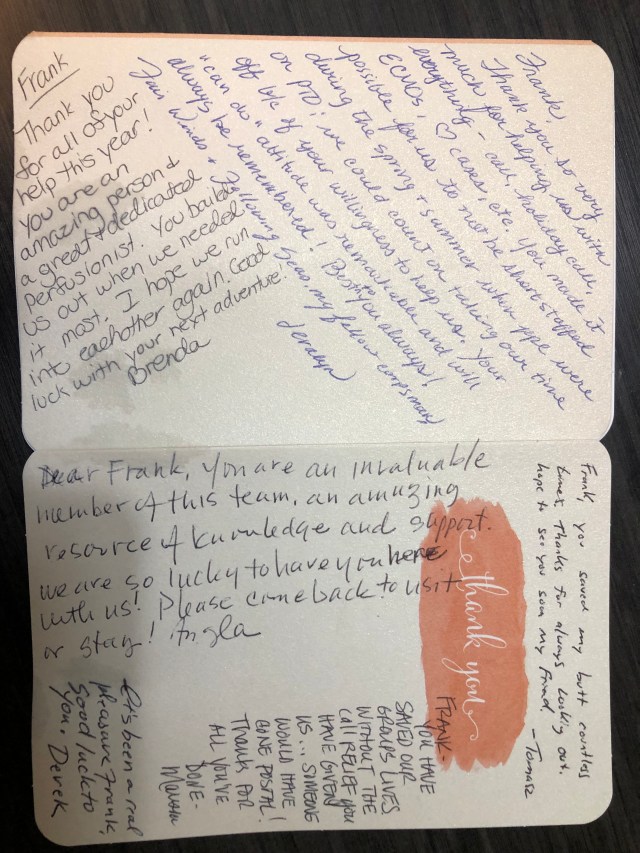 Frank
Thank you
for all of your
help this year!
You are an
amazing person &
a great & dedicated
perfusionist. You bailed
us out when we needed
it most. I hope we run
into eachother again. Good
luck with your next adventure!
Brenda
Frank,
Thank you so very
much for helping us with
everything - call, holiday call,
ECMOs, ♡ cases, etc. You made it
possible for us to not be short staffed
during the spring + summer when ppl were
on PTO; we could count on taking our time
off b/c of your willingness to help us. Your
"can do" attitude was remarkable and will
always be remembered! Best to you always!
Fair Winds + Following Seas, my fellow corpsman,
Jeralyn
Dear Frank, you are an invaluable
member of this team, an amazing
resource of knowledge and support.
We are so lucky to have you here
with us! Please come back to visit
or stay!
thank you
Frank, you saved my butt countless
times. Thanks for always looking out.
hope to see you soon my friend.
- Tomasz
FRANK -
YOU HAVE
SAVED OUR
GROUPS LIVES
WITHOUT THE
CALL RELIEF YOU
HAVE GIVEN
US... SOMEONE
WOULD HAVE
GONE POSTAL!
THANKS FOR
ALL YOU'VE
DONE -
It's been a real
pleasure Frank,
Good luck to
you. Derek